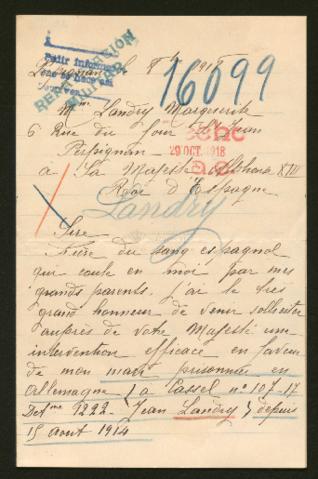 Perpignan
16099
Mme Landry Marguerite
6 Rue du Four St Jean
Perpignan
29 OCT. 1918
a Sa Majesté Alphonse XIII
Roi d'Espagne
Landry
Sire
Fière du sang espagnol
qui coule en moi par mes
grands parents, j'ai le très
grand honneur de venir solliciter
auprès de votre Majesté une
intervention efficace en faveur
de mon mari prisonnier en
Allemagne (a Cassel n° 107-17
1222 - Jean Landry) depuis
15 aout 1914